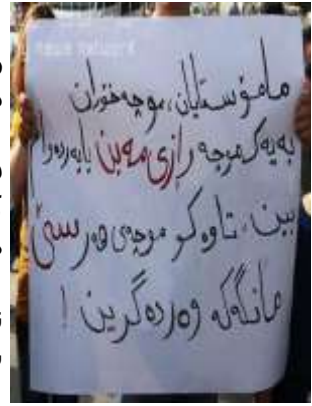 مامۆستایان، موچەخۆران
بەیەک موچە رازی مەبن با بەردەوام
بین، تاوەکو موچەی هەر سێ
مانگەکە وەردەگرین !